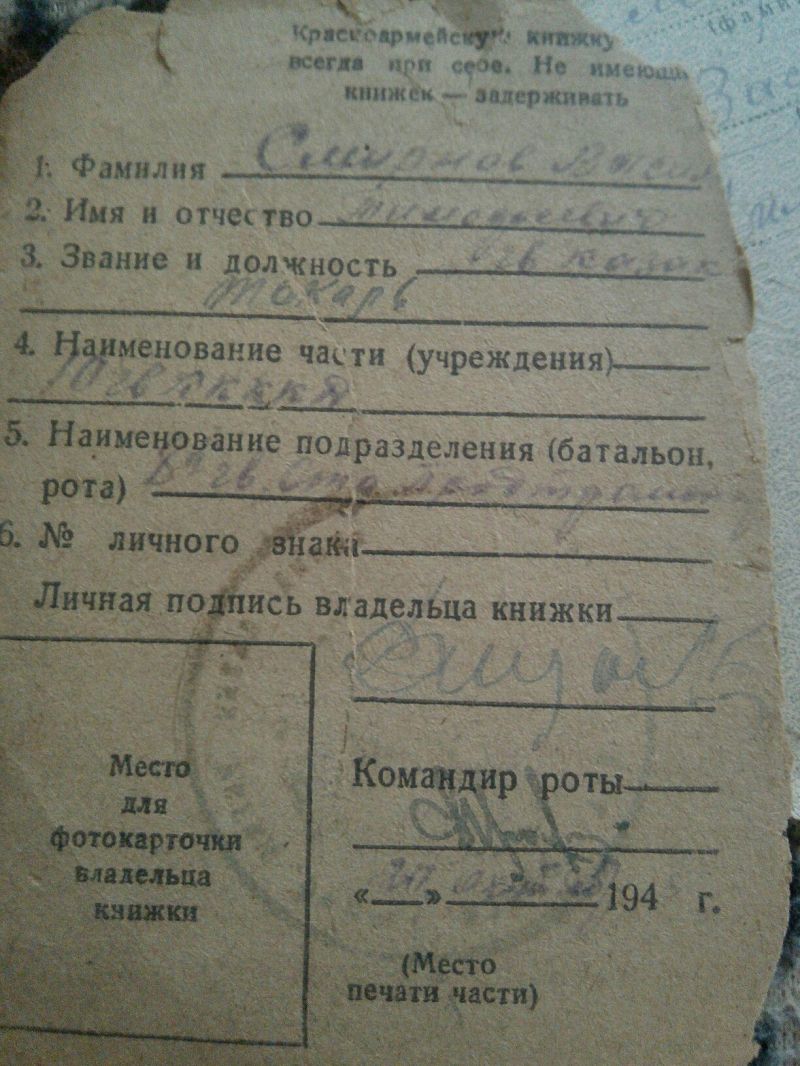 Красноармейскую книжку
всегда при себе. Не имеющих
книжек — задерживать
1. Фамилия Смирнов Васил
2. Имя и отчество Тимофеевич
3. Звание и должность гв казак
токарь
4. Наименование части (учреждения)
10 гв кккд
5. Наименование подразделения (батальон,
рота) гв.
6. № личного знака
Личная подпись владельца книжки
Место
для
фотокарточки
владельца
книжки
Командир роты
« » 194 г.
(Место
печати части)